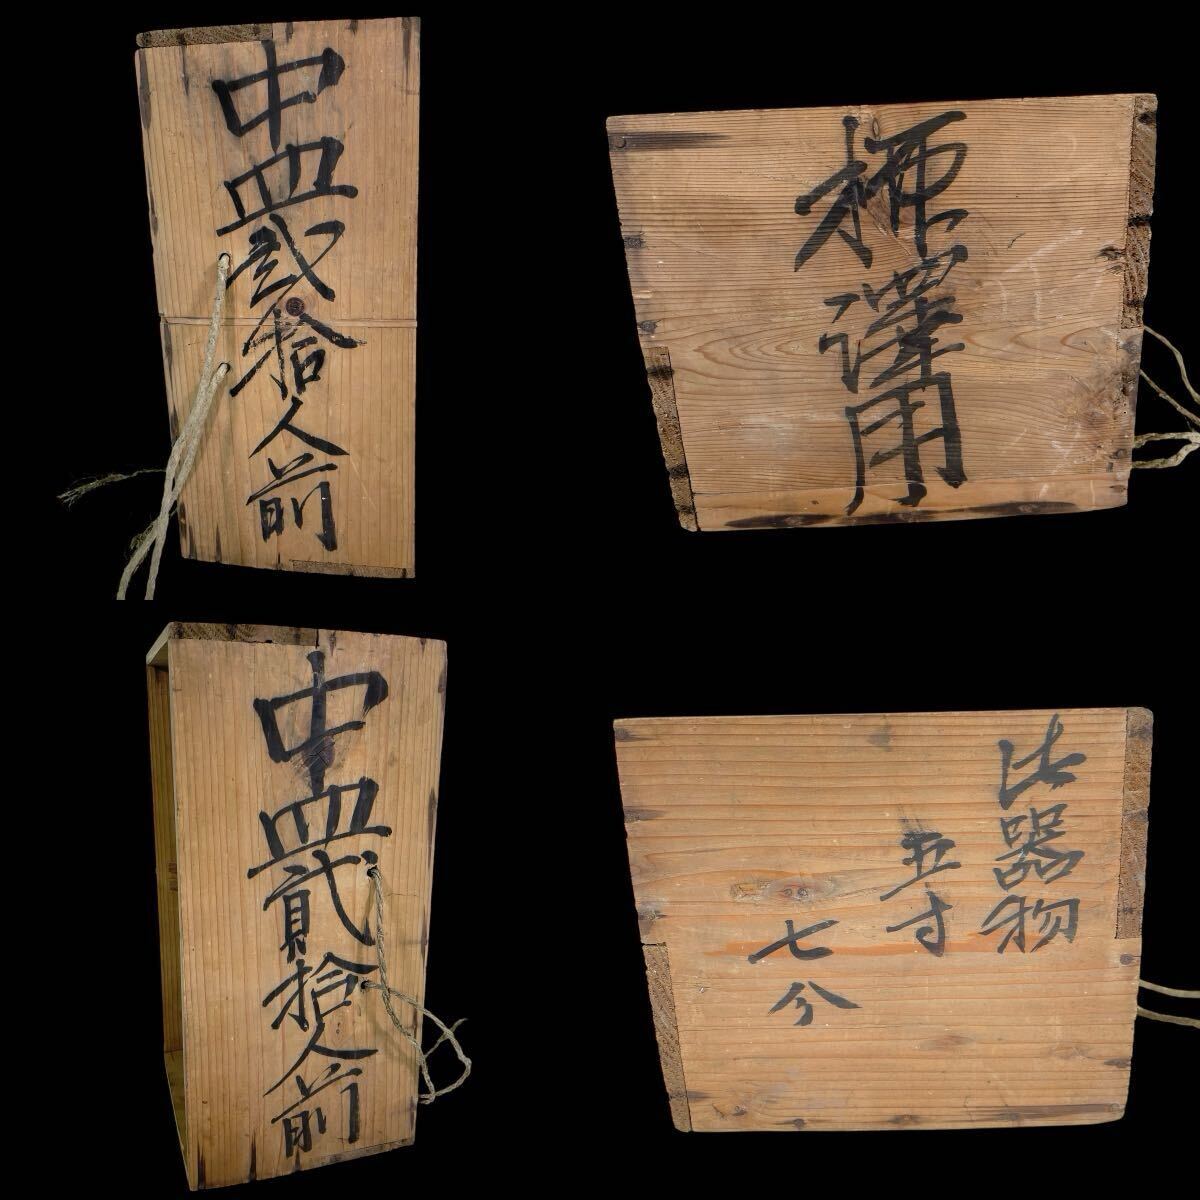 中皿弐拾人前
柄澤用
中皿貳拾人前
此器物
五寸
七分